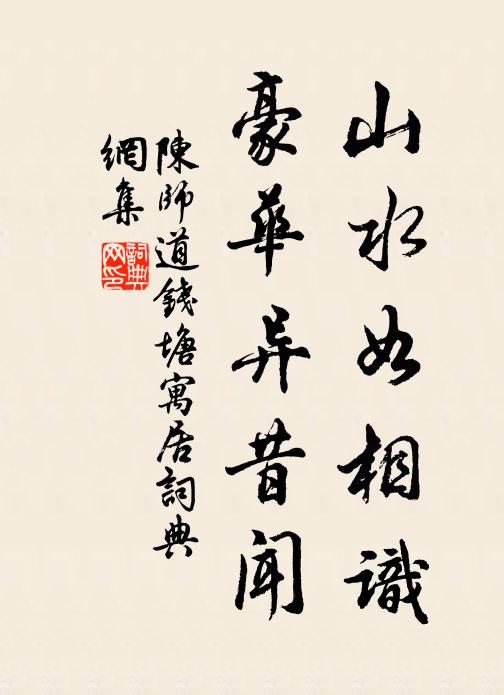 山水如相識
豪華异昔聞
陳師道錢塘寓居詞典
網集
詞典網印